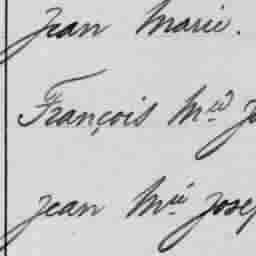 Jean Marie.
François Mie J
Jean Mie Josep